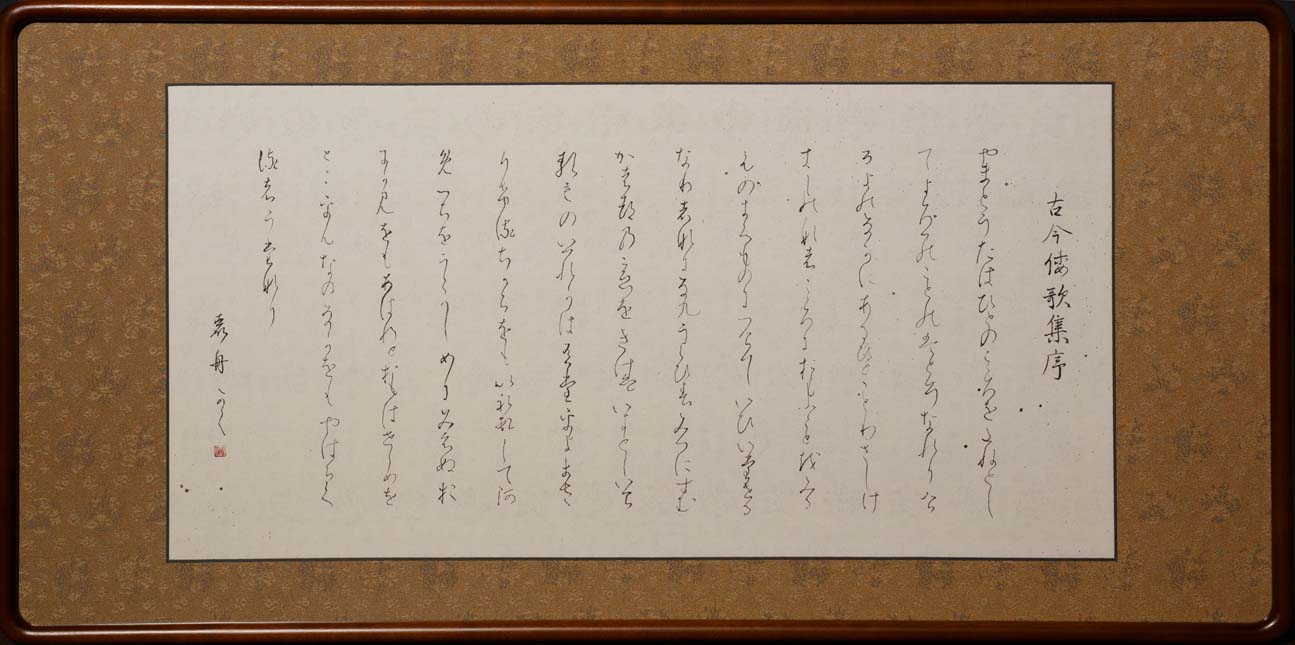 古今倭歌集序
やまとうたはひとのこゝろをたねとし
てよろつのことのはとそなれりけ
るよのなかにあるひとことわさしけ
きものなれはこゝろにおもふことを見る
ものきくものにつけていひいたせる
なりはなになくうくひすみつにすむ
かはつのこゑをきけはいきとしいけ
るものいつれかはうたをよまさ
りけるちからをもいれすしてあ
めつちをうこかしめに見えぬお
にかみをもあはれとおもはせ を
とこをんなのなかをもやはらく
るはうたなり
舟かく